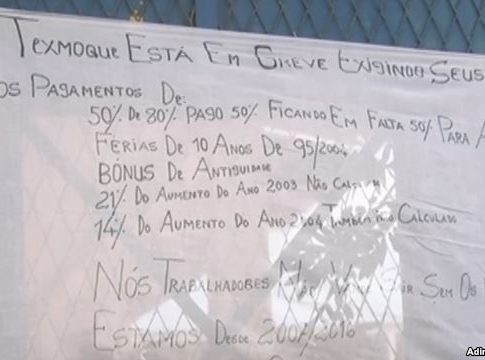 Texmoque Está Em Greve Exigindo Seus
os Pagamentos De:
50% De 80% Pago 50% Ficando Em Falta 50% Para A
Férias De 10 Anos De 95/2004
Bónus De Antiguidade
21% Do Aumento Do Ano 2003 Não
14% Do Aumento Do Ano 2004 Também não Calculado
Nós Trabalhadores Sem Os
Estamos Desde 2004/2016
Adin